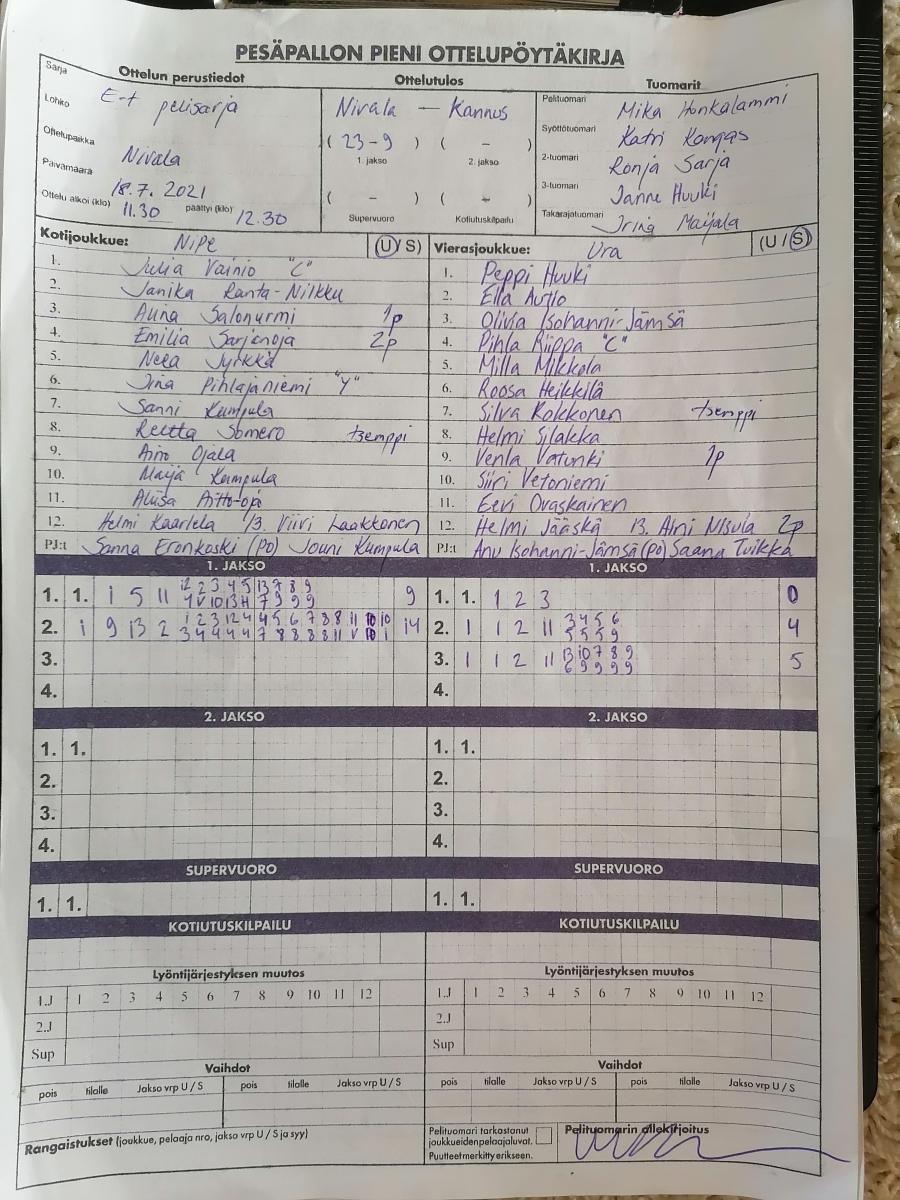 PESÄPALLON PIENI OTTELUPÖYTÄKIRJA
Ottelun perustiedot
Sarja
Lohko
E-t pelisarja
Ottelupaikka
Nivala
Päivämäärä
18.7. 2021
Ottelu alkoi (klo) 11.30 päättyi (klo) 12.30
Ottelutulos
Nivala — Kannus
( 23-9 ) ( - )
1. jakso 2. jakso
( - ) ( - )
Supervuoro Kotiutuskilpailu
Tuomarit
Pelituomari Mika Honkalammi
Syöttötuomari Katri Kangas
2-tuomari Ronja Sarja
3-tuomari Janne Huuki
Takarajatuomari Irina Maijala
Kotijoukkue: Nipe (U/S)
1. Julia Vainio "C"
2. Janika Ranta-Nilkku
3. Alina Salonurmi 1p
4. Emilia Sarjanoja 2p
5. Neea Jyrkkä
6. Iina Pihlajaniemi "Y"
7. Sanni Kumpula
8. Reetta Somero tsemppi
9. Aino Ojala
10. Maija Kumpula
11. Aliisa Aitto-oja
12. Helmi Kaarlela 13. Viivi Laakkonen
PJ:t Sanna Eronkoski (PO) Jouni Kumpula
Vierasjoukkue: Ura (U/S)
1. Peppi Huuki
2. Ella Autio
3. Olivia Isohanni-Jämsä
4. Pihla Riippa "C"
5. Milla Mikkola
6. Roosa Heikkilä
7. Silva Kokkonen tsemppi
8. Helmi Silakka
9. Venla Vatunki 1p
10. Siiri Vetoniemi
11. Eevi Ovaskainen
12. Helmi Jääskä 13. Aini Nisula 2p
PJ:t Anu Isohanni-Jämsä (PO) Saana Tuikka
1. JAKSO
1. 1. 1 5 11 12 2 3 4 5 13 7 8 9 9
4 V 10 13 H 7 9 9 9
2. 1 9 13 2 1 2 3 12 4 4 5 6 7 8 8 11 10 10 14
3 4 4 4 4 7 8 8 8 8 11 V 10 1
3.
4.
1. JAKSO
1. 1. 1 2 3 0
2. 1 1 2 11 3 4 5 6 4
5 5 5 9
3. 1 1 2 11 13 10 7 8 9 5
6 9 9 9 9
4.
2. JAKSO
1. 1.
2.
3.
4.
2. JAKSO
1. 1.
2.
3.
4.
SUPERVUORO
1. 1.
SUPERVUORO
1. 1.
KOTIUTUSKILPAILU
KOTIUTUSKILPAILU
Lyöntijärjestyksen muutos
1.J 1 2 3 4 5 6 7 8 9 10 11 12
2.J
Sup
Lyöntijärjestyksen muutos
1.J 1 2 3 4 5 6 7 8 9 10 11 12
2.J
Sup
Vaihdot
pois tilalle Jakso vrp U / S pois tilalle Jakso vrp U / S
Vaihdot
pois tilalle Jakso vrp U / S pois tilalle Jakso vrp U / S
Rangaistukset (joukkue, pelaaja nro, jakso vrp U / S ja syy)
Pelituomari tarkastanut
joukkueidenpelaajaluvat.
Puutteetmerkittyerikseen.
Pelituomarin allekirjoitus